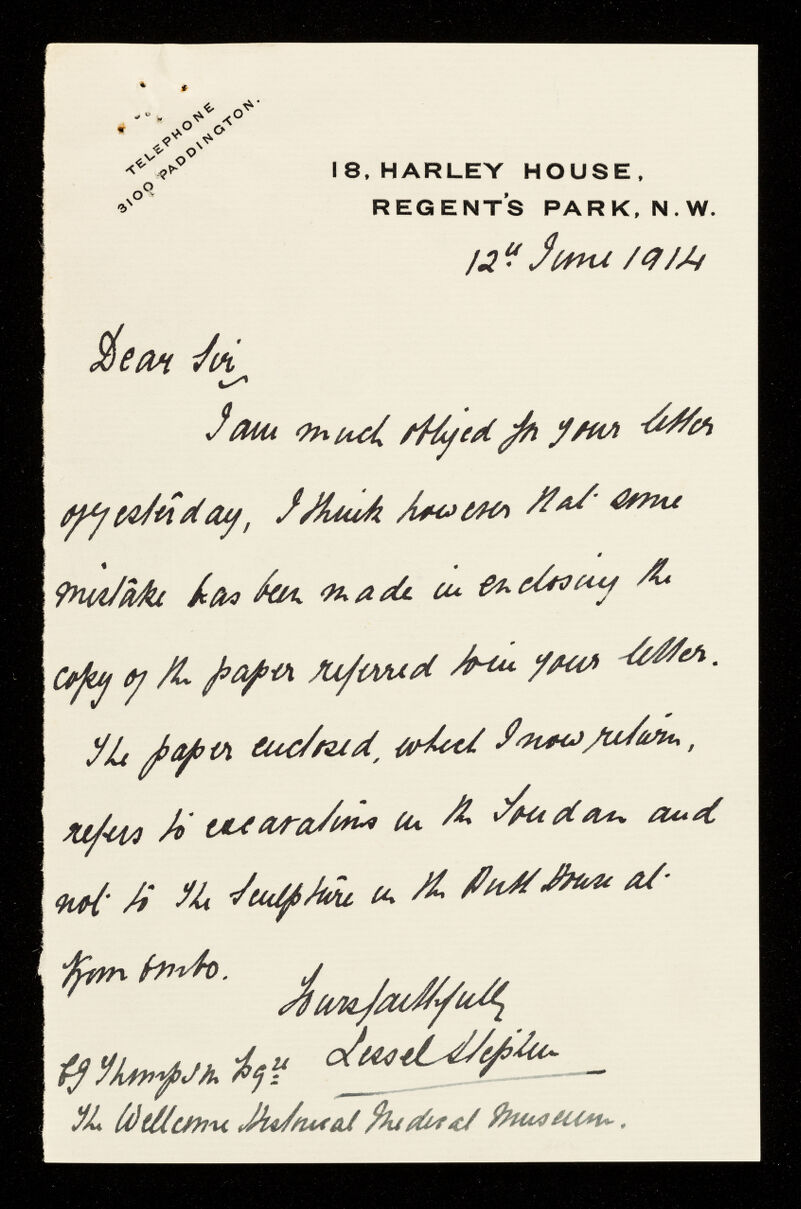 TELEPHONE
3100 PADDINGTON.
18, HARLEY HOUSE,
REGENT'S PARK, N.W.
12th June 1914
Dear Sir,
I am much obliged for your letter
of yesterday, I think however that some
mistake has been made in enclosing the
copy of the paper referred to in your letter.
The paper enclosed, which I now return,
refers to excavations in the Soudan and
not to the Sculpture in the Birth House at
Kom Ombo.
Yours faithfully
Lessel Stephen
CJ Thompson Esqre
The Wellcome Historical Medical Museum.